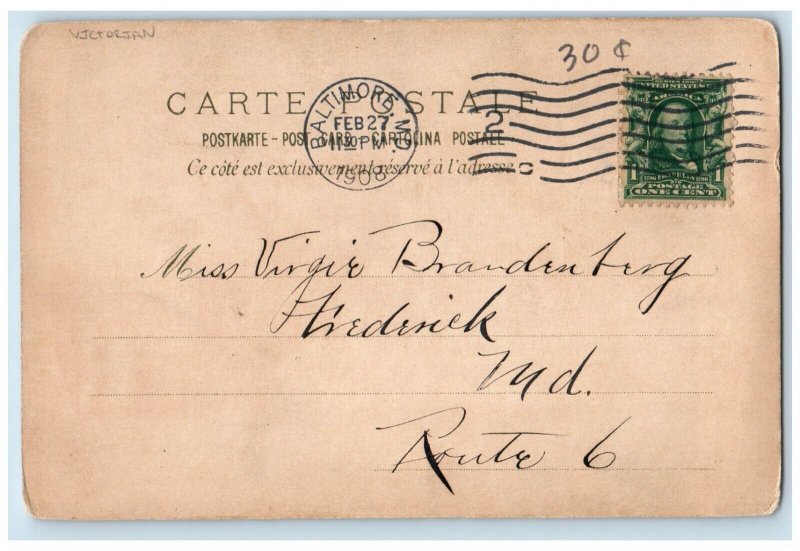 VICTORIAN
30 ¢
CARTE POSTALE
POSTKARTE - POST CARD - CARTOLINA POSTALE
Ce côté est exclusivement réservé à l'adresse
BALTIMORE, MD.
FEB 27
1908
UNITED STATES
1 POSTAGE 1
ONE CENT
Miss Virgie Brandenberg
Frederick
Md.
Route 6